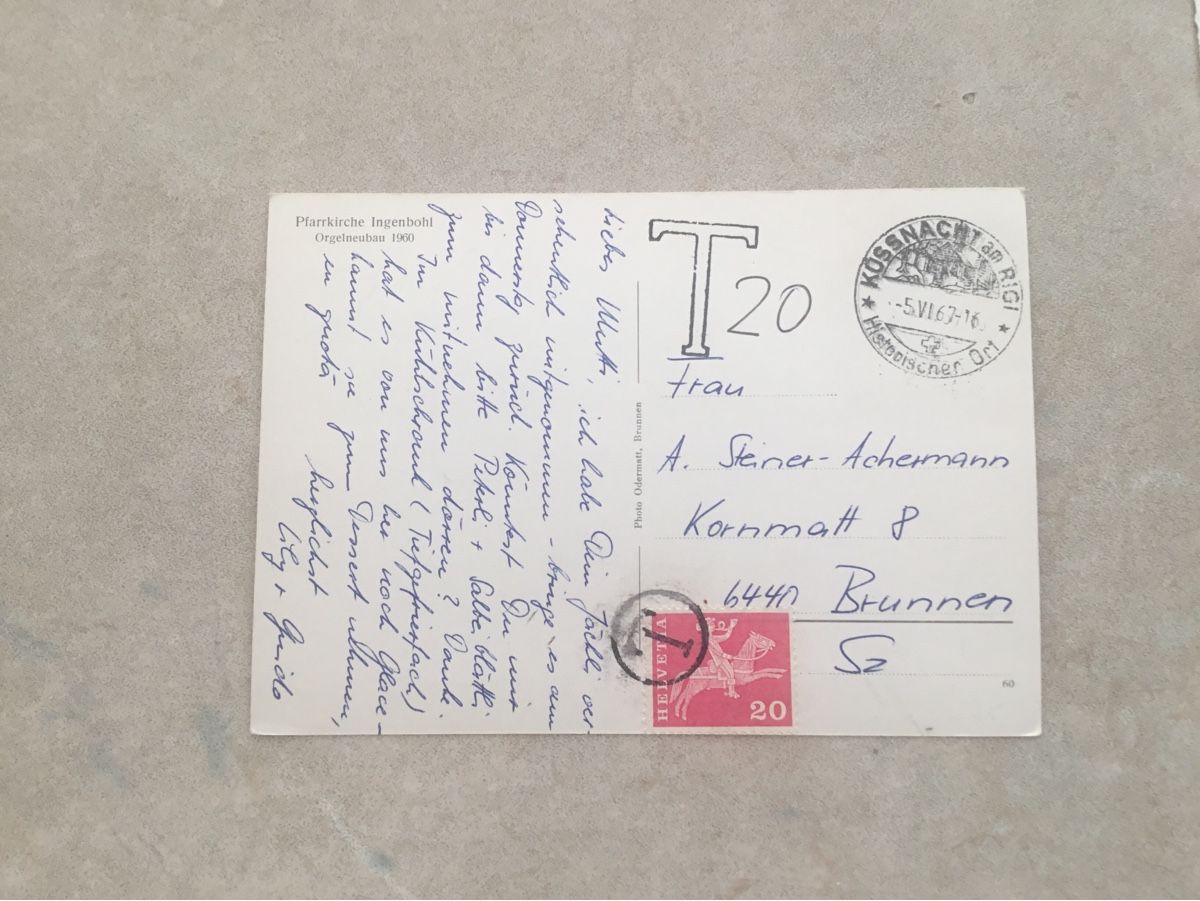 Pfarrkirche Ingenbohl
Orgelneubau 1960
Liebes Mutti, ich habe Dein Jäckli ver-
sehentlich mitgenommen - bringe es am
Donnerstg zurück. Könntest Du mir
bis dann bitte Peterli + Salbeiblättli
zum mitnehmen dörren? Danke.
Im Kühlschrank (Tiefgefrierfach)
hat es von uns her noch Glace -
kannst sie zum Dessert nehmen,
en guetä
herzlichst
Lily + Guido
Photo Odermatt, Brunnen
T 20
KÜSSNACHT am RIGI
-5.VI.67-16
Historischer Ort
Frau
A. Steiner-Achermann
Kornmatt 8
6440 Brunnen
Sz
T
HELVETIA
20
60